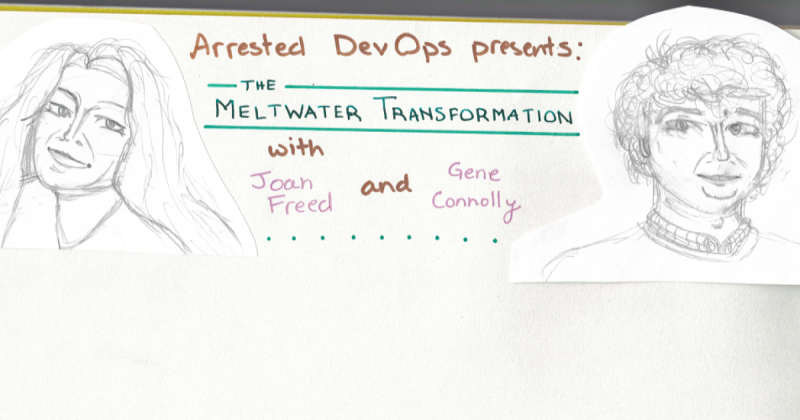 Arrested DevOps presents:
THE
MELTWATER TRANSFORMATION
with
Joan Freed
and
Gene Connolly